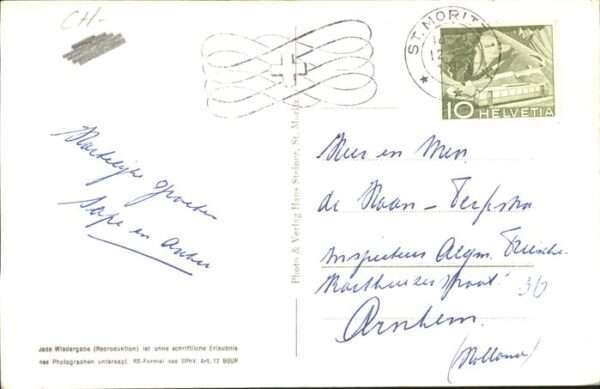 CH-
ST. MORITZ 1
10 HELVETIA
Hartelijke Groeten
en
Photo & Verlag Hans Steiner, St. Moritz
en Mevr.
de Haan - Terpstra
Inspecteur Algem.
36
Arnhem
(Holland)
Jede Wiedergabe (Reproduktion) ist ohne schriftliche Erlaubnis
des Photographen untersagt. RS-Formel des SPhV. Art. 12 BGUR